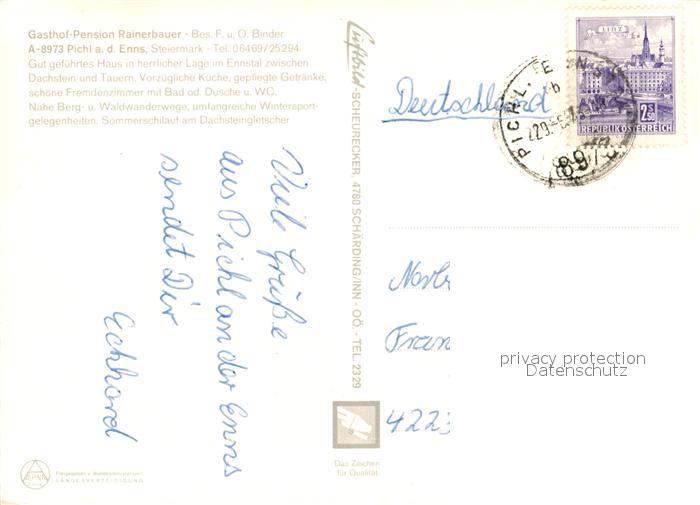 Gasthof-Pension Rainerbauer - Bes. F. u. O. Binder
A-8973 Pichl a. d. Enns, Steiermark - Tel. 06469/25294
Gut geführtes Haus in herrlicher Lage im Ennstal zwischen
Dachstein und Tauern. Vorzügliche Küche, gepflegte Getränke,
schöne Fremdenzimmer mit Bad od. Dusche u. WC.
Nahe Berg- u. Waldwanderwege, umfangreiche Wintersport-
gelegenheiten, Sommerschilauf am Dachsteingletscher
Viele Grüße
aus Pichl an der Enns
sendet Dir
Eckhard
Luftbild-SCHEURECKER, 4780 SCHÄRDING/INN - OÖ. - TEL. 2329
Das Zeichen
für Qualität
LANDESVERTEIDIGUNG
Deutschland
LINZ
2.50
REPUBLIK ÖSTERREICH
PICHL
8973
Norb
Fran
4223
privacy protection
Datenschutz